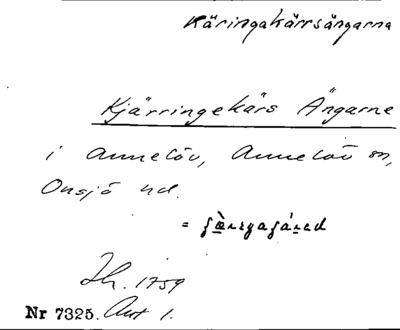 Käringakärrsängarna
Kjärringekärs Ängarne
i Annelöv, Annelöv sn,
Onsjö hd.
=
1759
Nr 7325. Akt 1.